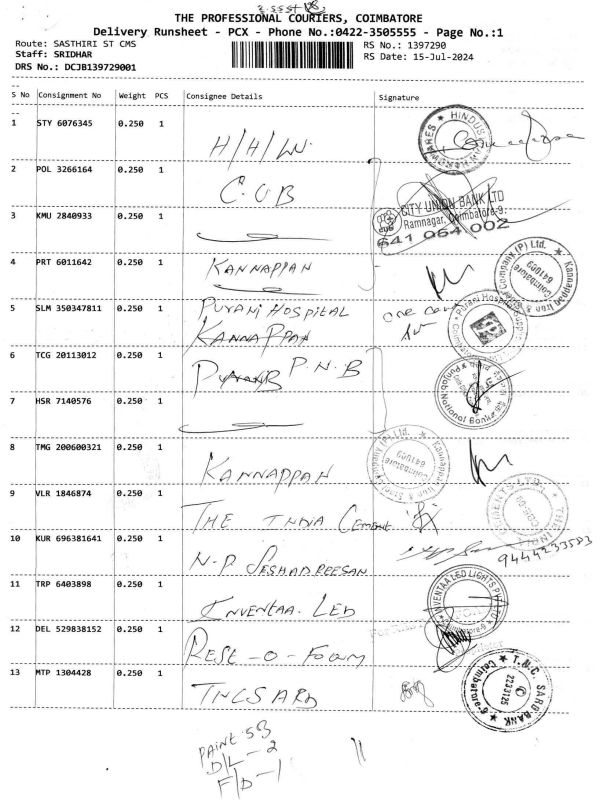 THE PROFESSIONAL COURIERS, COIMBATORE
Delivery Runsheet - PCX - Phone No.:0422-3505555 - Page No.:1
Route: SASTHIRI ST CMS
RS No.: 1397290
Staff: SRIDHAR
RS Date: 15-Jul-2024
DRS No.: DCJB139729001
S No Consignment No Weight PCS Consignee Details Signature
1 STY 6076345 0.250 1 H/H/W.
HINDUS
2 POL 3266164 0.250 1 C.U.B
CITY UNION BANK LTD
Ramnagar, Coimbatore-9.
641 064 002
3 KMU 2840933 0.250 1
4 PRT 6011642 0.250 1 KANNAPPAN
Kannappan Iron & Steel Company (P) Ltd.
Coimbatore
641009
5 SLM 350347811 0.250 1 PURANI HOSPITAL
KANNAPPAN
one
Purani Hospital Supplies
6 TCG 20113012 0.250 1 P.N.B
Punjab National Bank
7 HSR 7140576 0.250 1
8 TMG 200600321 0.250 1 KANNAPPAN
Kannappan Iron & Steel Company (P) Ltd.
Coimbatore
641009
9 VLR 1846874 0.250 1 THE INDIA CEMENT
10 KUR 696381641 0.250 1 N.P SESHADREESAN
9444233583
11 TRP 6403898 0.250 1 INVENTAA LED
INVENTAA LED LIGHTS PVT LTD
12 DEL 529838152 0.250 1 REST-O-FOAM
13 MTP 1304428 0.250 1 TNCSARB
T.N.C. SARD BANK
Coimbatore-9
2231125
PAINT-53
D/L-2
F/D-1